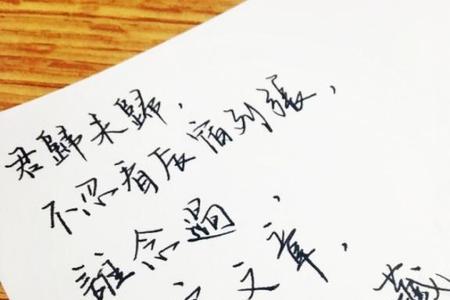 君歸未歸，
不忍看辰宿列張，
誰念過，
文章，
藏